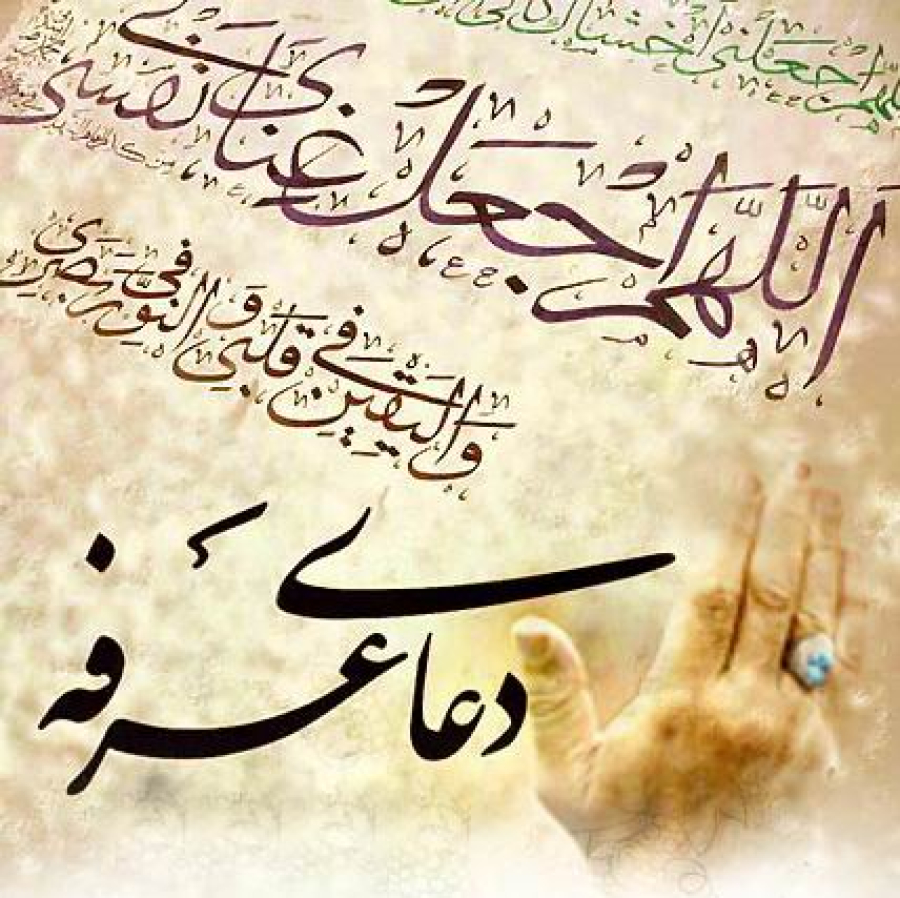 اللهم اجعلني اخشاك كاني
اَللّهُمَّ اجْعَلْ غِنايَ في نَفْسي
وَالْیَقینَ في قَلْبي وَ النُّورَ في بَصَري
دعای عرفه